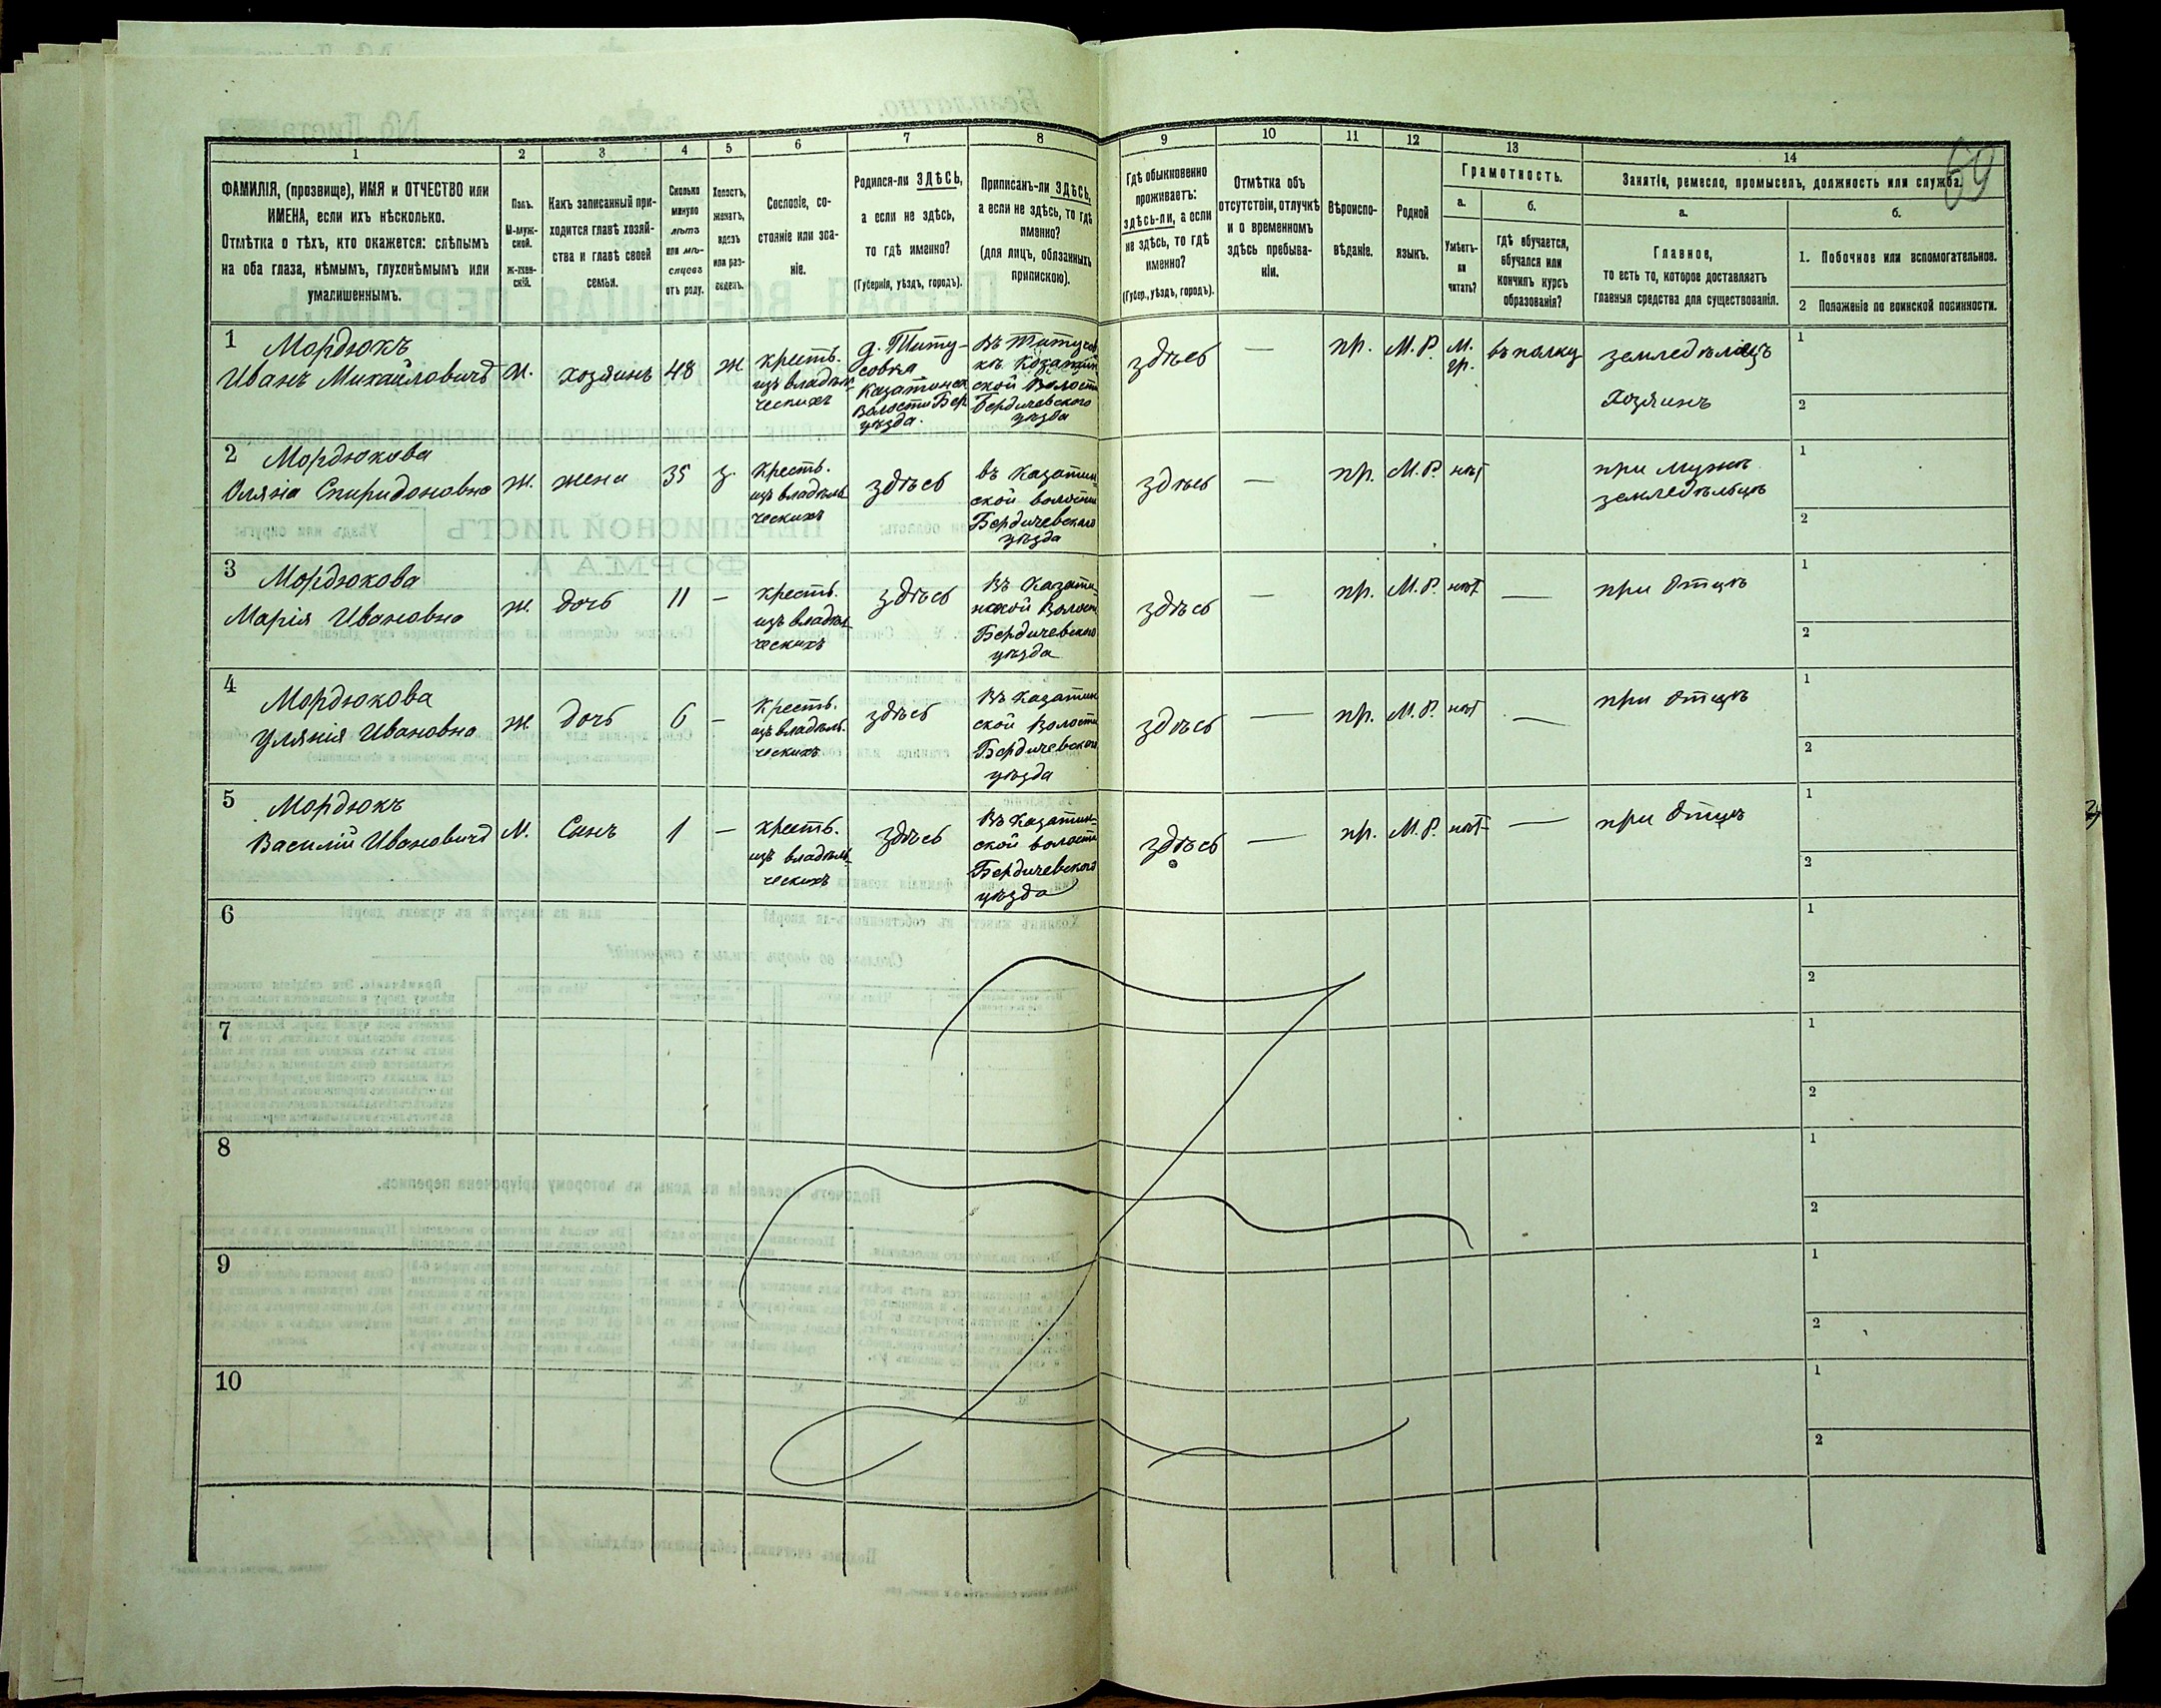 69
1 2 3 4 5 6 7 8 9 10 11 12 13 14
ФАМИЛІЯ, (прозвище), ИМЯ и ОТЧЕСТВО или
ИМЕНА, если ихъ нѣсколько.
Отмѣтка о тѣхъ, кто окажется: слѣпымъ
на оба глаза, нѣмымъ, глухонѣмымъ или
умалишеннымъ.
Полъ.
М-муж-
ской.
Ж-жен-
скій.
Какъ записанный при-
ходится главѣ хозяй-
ства и главѣ своей
семьи.
Сколько
минуло
лѣтъ
или мѣ-
сяцевъ
отъ роду.
Холостъ,
женатъ,
вдовъ
или раз-
веденъ.
Сословіе, со-
стояніе или зва-
ніе.
Родился-ли ЗДѢСЬ,
а если не здѣсь,
то гдѣ именно?
(Губернія, уѣздъ, городъ).
Приписанъ-ли ЗДѢСЬ,
а если не здѣсь, то гдѣ
именно?
(для лицъ, обязанныхъ
припискою).
Гдѣ обыкновенно
проживаетъ:
здѣсь-ли, а если
не здѣсь, то гдѣ
именно?
(Губер., уѣздъ, городъ).
Отмѣтка объ
отсутствіи, отлучкѣ
и о временномъ
здѣсь пребыва-
ніи.
Вѣроиспо-
вѣданіе.
Родной
языкъ.
Грамотность.
а.
Умѣетъ-
ли
читать?
б.
гдѣ обучается,
обучался или
кончилъ курсъ
образованія?
Занятіе, ремесло, промыселъ, должность или служба.
а.
Главное,
то есть то, которое доставляетъ
главныя средства для существованія.
б.
1. Побочное или вспомогательное.
2 Положеніе по воинской повинности.
1
Мордюкъ
Иванъ Михайловичъ
М.
хозяинъ
48
ж
кресть.
изъ владѣль-
ческихъ
д. Титу-
совка
Казатинск
Волости Бер
уѣзда.
Въ Титусов
кѣ Козатин
ской Волости
Бердичевского
уѣзда
здѣсь
—
пр.
М.Р.
М.
гр.
въ полку
земледѣлецъ
Хозяинъ
1
2
2
Мордюкова
Оляна Спиридоновна
ж.
жена
35
з.
Кресть.
изъ владѣль
ческихъ
здѣсь
въ Казатин
ской волости
Бердичевского
уѣзда
здѣсь
—
пр.
М.Р.
нѣт
при мужѣ
земледѣльцѣ
1
2
3
Мордюкова
Марія Ивановна
ж.
дочь
11
—
кресть.
изъ владѣль-
ческихъ
здѣсь
Въ Казати-
нской Волости
Бердичевского
уѣзда
здѣсь
—
пр.
М.Р.
нѣт
—
при отцѣ
1
2
4
Мордюкова
Улянія Ивановна
ж
дочь
6
—
Кресть.
изъ владѣль.
ческихъ
здѣсь
Въ Казатин
ской Волости
Бердичевского
уѣзда
здѣсь
—
пр.
М.Р.
нѣт
—
при отцѣ
1
2
5
Мордюкъ
Василій Ивановичъ
М.
Сынъ
1
—
кресть.
изъ владѣль-
ческихъ
здѣсь
Въ Казатин-
ской волости
Бердичевского
уѣзда
здѣсь
—
пр.
М.Р.
нѣт
—
при отцѣ
1
2
6
1
2
7
1
2
8
1
2
9
1
2
10
1
2